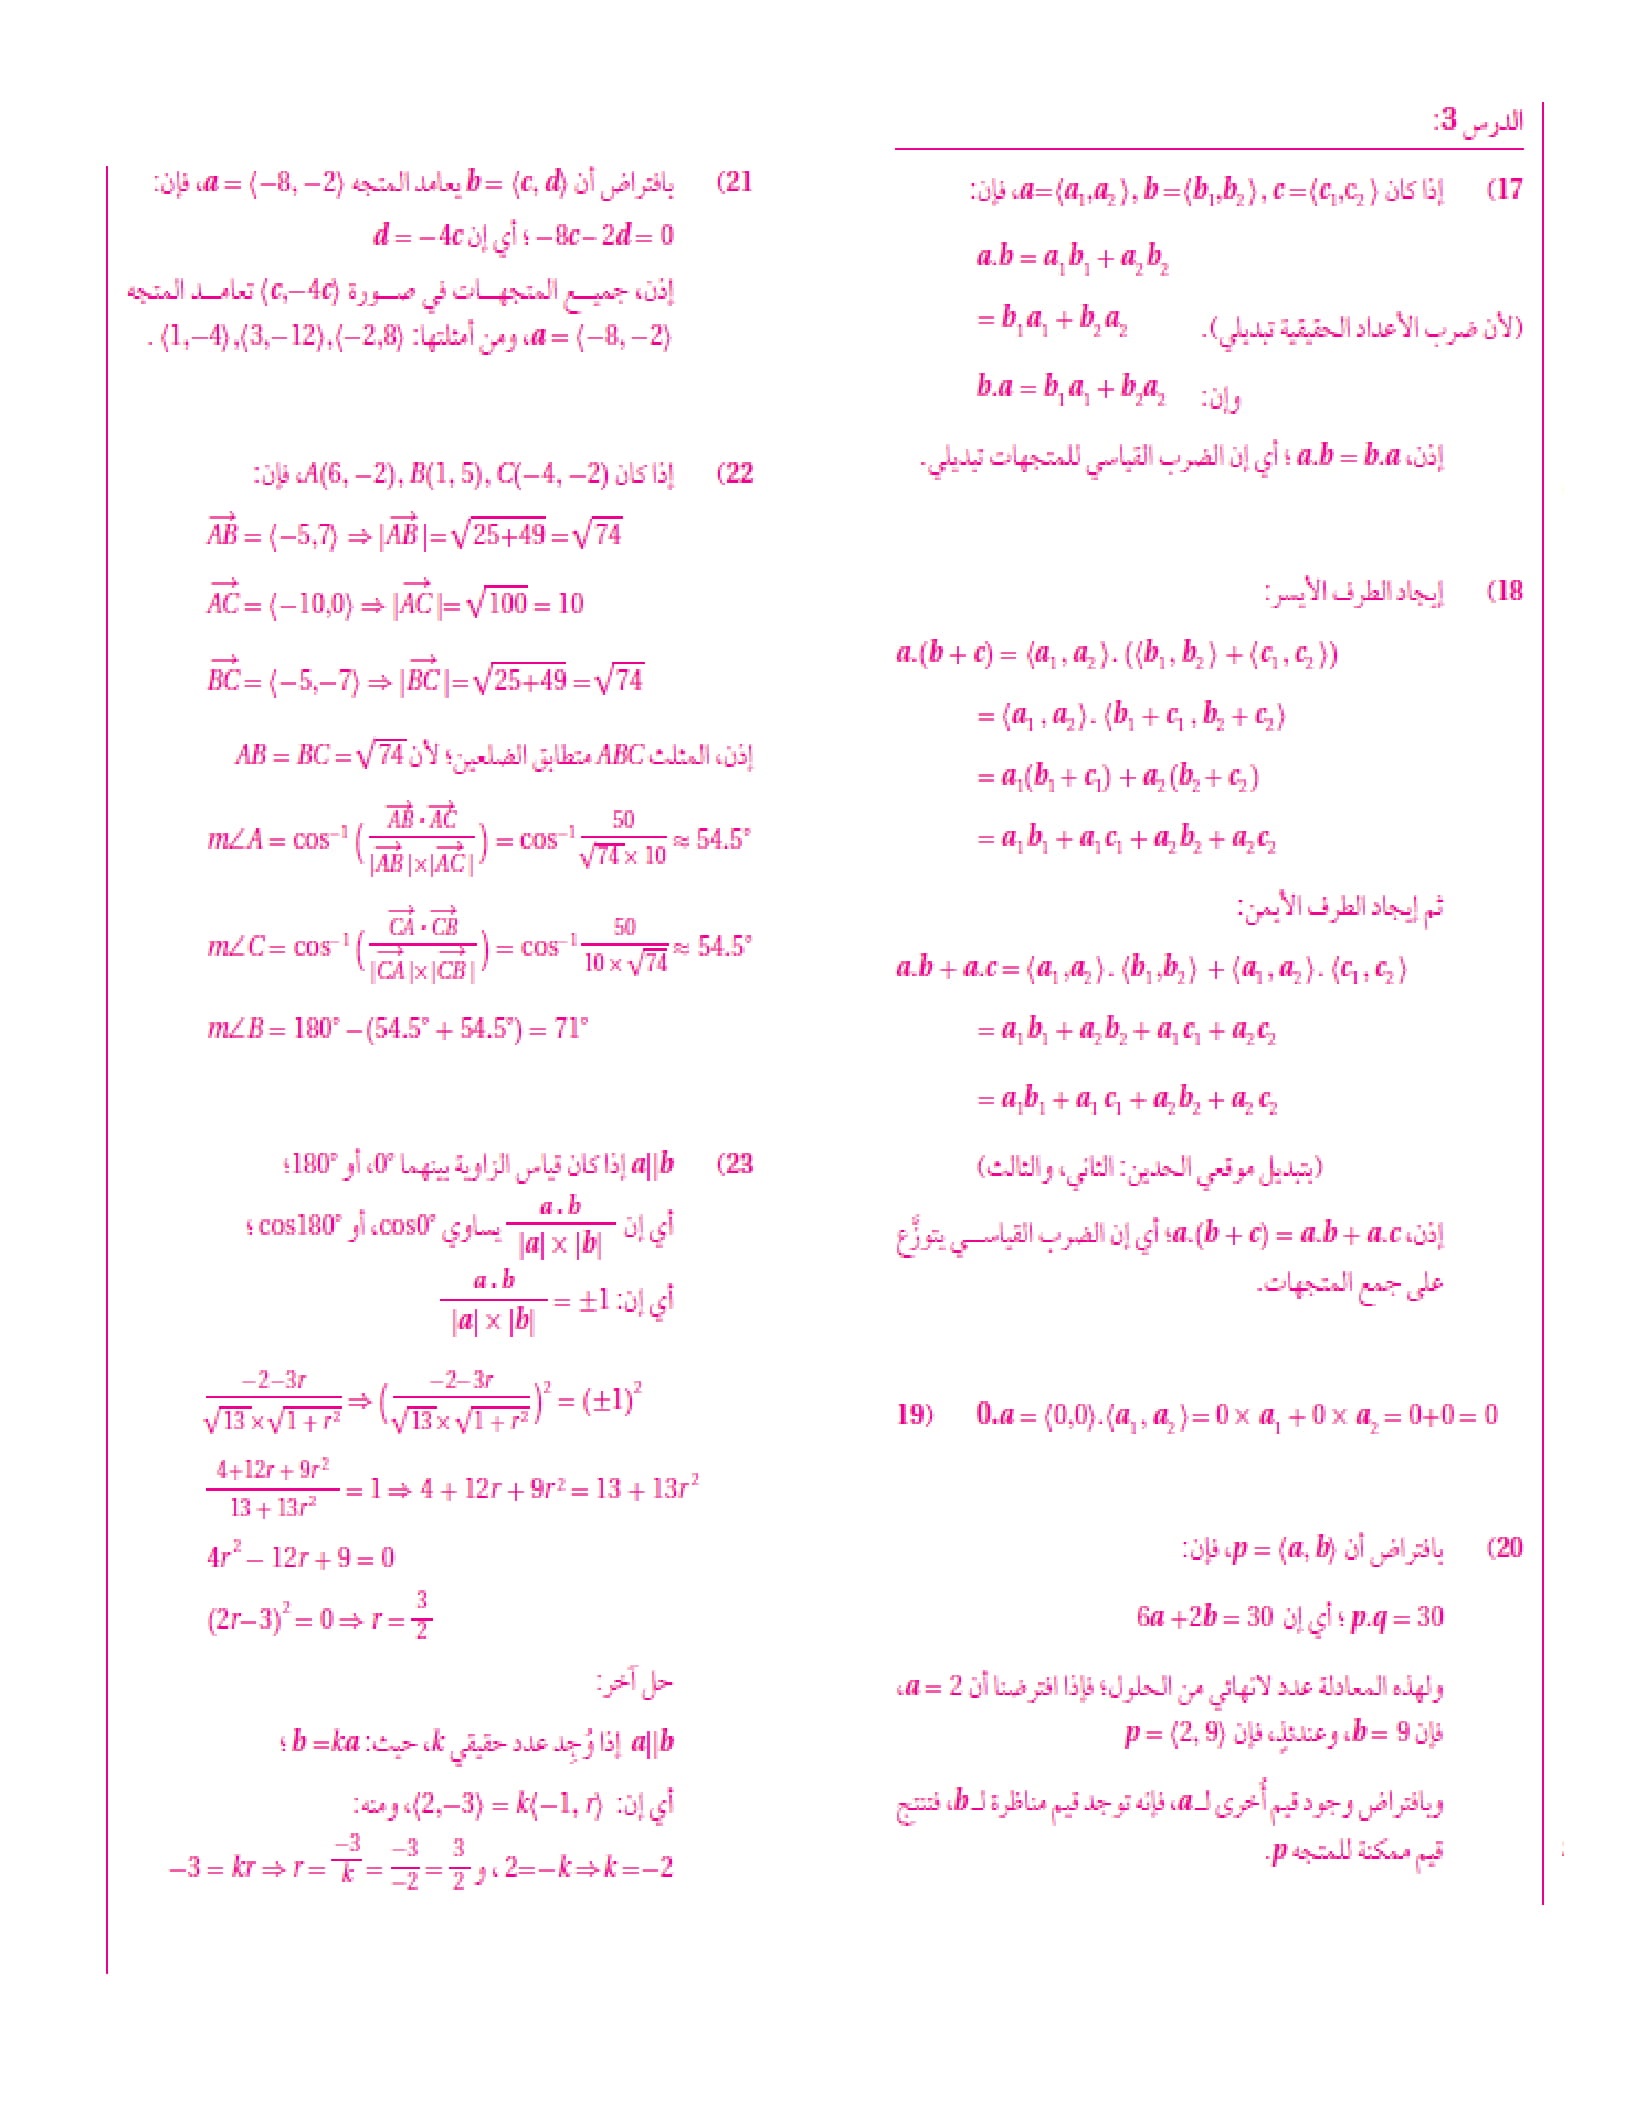 الدرس 3:
17) إذا كان a=⟨a₁,a₂⟩, b=⟨b₁,b₂⟩, c=⟨c₁,c₂⟩، فإن:
a.b = a₁b₁ + a₂b₂
= b₁a₁ + b₂a₂ (لأن ضرب الأعداد الحقيقية تبديلي).
وإن: b.a = b₁a₁ + b₂a₂
إذن، a.b = b.a ؛ أي إن الضرب القياسي للمتجهات تبديلي.
18) إيجاد الطرف الأيسر:
a.(b + c) = ⟨a₁, a₂⟩. (⟨b₁, b₂⟩ + ⟨c₁, c₂⟩)
= ⟨a₁, a₂⟩. ⟨b₁ + c₁, b₂ + c₂⟩
= a₁(b₁ + c₁) + a₂(b₂ + c₂)
= a₁b₁ + a₁c₁ + a₂b₂ + a₂c₂
ثم إيجاد الطرف الأيمن:
a.b + a.c = ⟨a₁,a₂⟩. ⟨b₁,b₂⟩ + ⟨a₁, a₂⟩. ⟨c₁, c₂⟩
= a₁b₁ + a₂b₂ + a₁c₁ + a₂c₂
= a₁b₁ + a₁c₁ + a₂b₂ + a₂c₂
(بتبديل موقعي الحدين: الثاني، والثالث)
إذن، a.(b + c) = a.b + a.c؛ أي إن الضرب القياســي يتوزَّع
على جمع المتجهات.
19) 0.a = ⟨0,0⟩.⟨a₁, a₂⟩ = 0 × a₁ + 0 × a₂ = 0+0 = 0
20) بافتراض أن p = ⟨a, b⟩، فإن:
p.q = 30 ؛ أي إن 6a +2b = 30
ولهذه المعادلة عدد لانهائي من الحلول؛ فإذا افترضنا أن a = 2،
فإن b = 9، وعندئذٍ، فإن p = ⟨2, 9⟩
وبافتراض وجود قيم أُخرى لـ a، فإنه توجد قيم مناظرة لـ b، فتنتج
قيم ممكنة للمتجه p.
21) بافتراض أن b = ⟨c, d⟩ يعامد المتجه a = ⟨−8, −2⟩، فإن:
−8c − 2d = 0 ؛ أي إن d = −4c
إذن، جميــع المتجهــات في صــورة ⟨c,−4c⟩ تعامــد المتجه
a = ⟨−8, −2⟩، ومن أمثلتها: ⟨1,−4⟩,⟨3,−12⟩,⟨−2,8⟩ .
22) إذا كان A(6, −2), B(1, 5), C(−4, −2)، فإن:
AB→ = ⟨−5,7⟩ ⇒ |AB→| = √(25+49) = √74
AC→ = ⟨−10,0⟩ ⇒ |AC→| = √100 = 10
BC→ = ⟨−5,−7⟩ ⇒ |BC→| = √(25+49) = √74
إذن، المثلث ABC متطابق الضلعين؛ لأن AB = BC = √74
m∠A = cos⁻¹ (AB→ · AC→ / |AB→|×|AC→|) = cos⁻¹ 50/(√74 × 10) ≈ 54.5°
m∠C = cos⁻¹ (CA→ · CB→ / |CA→|×|CB→|) = cos⁻¹ 50/(10 × √74) ≈ 54.5°
m∠B = 180° − (54.5° + 54.5°) = 71°
23) a||b إذا كان قياس الزاوية بينهما 0°، أو 180°؛
أي إن a . b / |a| × |b| يساوي cos0°، أو cos180° ؛
أي إن: a . b / |a| × |b| = ±1
(−2−3r)/(√13 × √(1 + r²)) ⇒ ((−2−3r)/(√13 × √(1 + r²)))² = (±1)²
(4+12r + 9r²)/(13 + 13r²) = 1 ⇒ 4 + 12r + 9r² = 13 + 13r²
4r² − 12r + 9 = 0
(2r−3)² = 0 ⇒ r = 3/2
حل آخر:
a||b إذا وُجِد عدد حقيقي k، حيث: b = ka ؛
أي إن: ⟨2,−3⟩ = k⟨−1, r⟩، ومنه:
2=−k ⇒ k = −2 ، و −3 = kr ⇒ r = −3/k = −3/−2 = 3/2